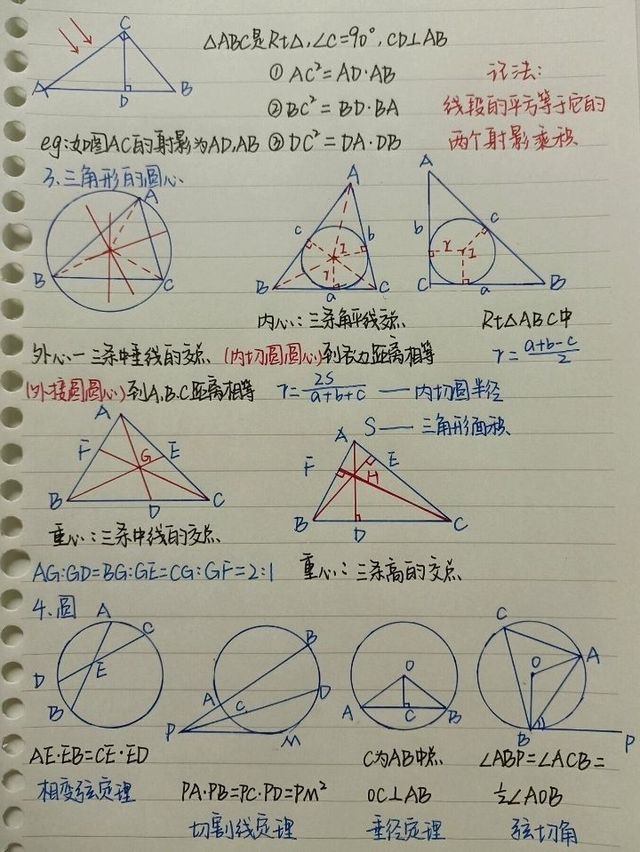 C
A
D
B
△ABC是Rt△,∠C=90°,CD⊥AB
① AC²=AD·AB
② BC²=BD·BA
eg:如图AC的射影为AD,AB ③ DC²=DA·DB
记法:
线段的平方等于它的
两个射影乘积
3、三角形的圆心
A
B
C
A
c
b
I
r
B
a
C
A
b
c
r
I
C
a
B
内心:三条角平线交点
Rt△ABC中
外心—三条中垂线的交点
(内切圆圆心)到各边距离相等
r=(a+b-c)/2
(外接圆圆心)到A,B,C距离相等
r=2S/(a+b+c) —内切圆半径
S—三角形面积
A
F
E
G
B
D
C
A
F
E
H
B
D
C
重心:三条中线的交点
重心:三条高的交点
AG:GD=BG:GE=CG:GF=2:1
4、圆
A
C
D
E
B
B
A
C
D
P
M
O
A
C
B
C
O
A
B
P
AE·EB=CE·ED
相交弦定理
PA·PB=PC·PD=PM²
切割线定理
C为AB中点
OC⊥AB
垂径定理
∠ABP=∠ACB=
½∠AOB
弦切角